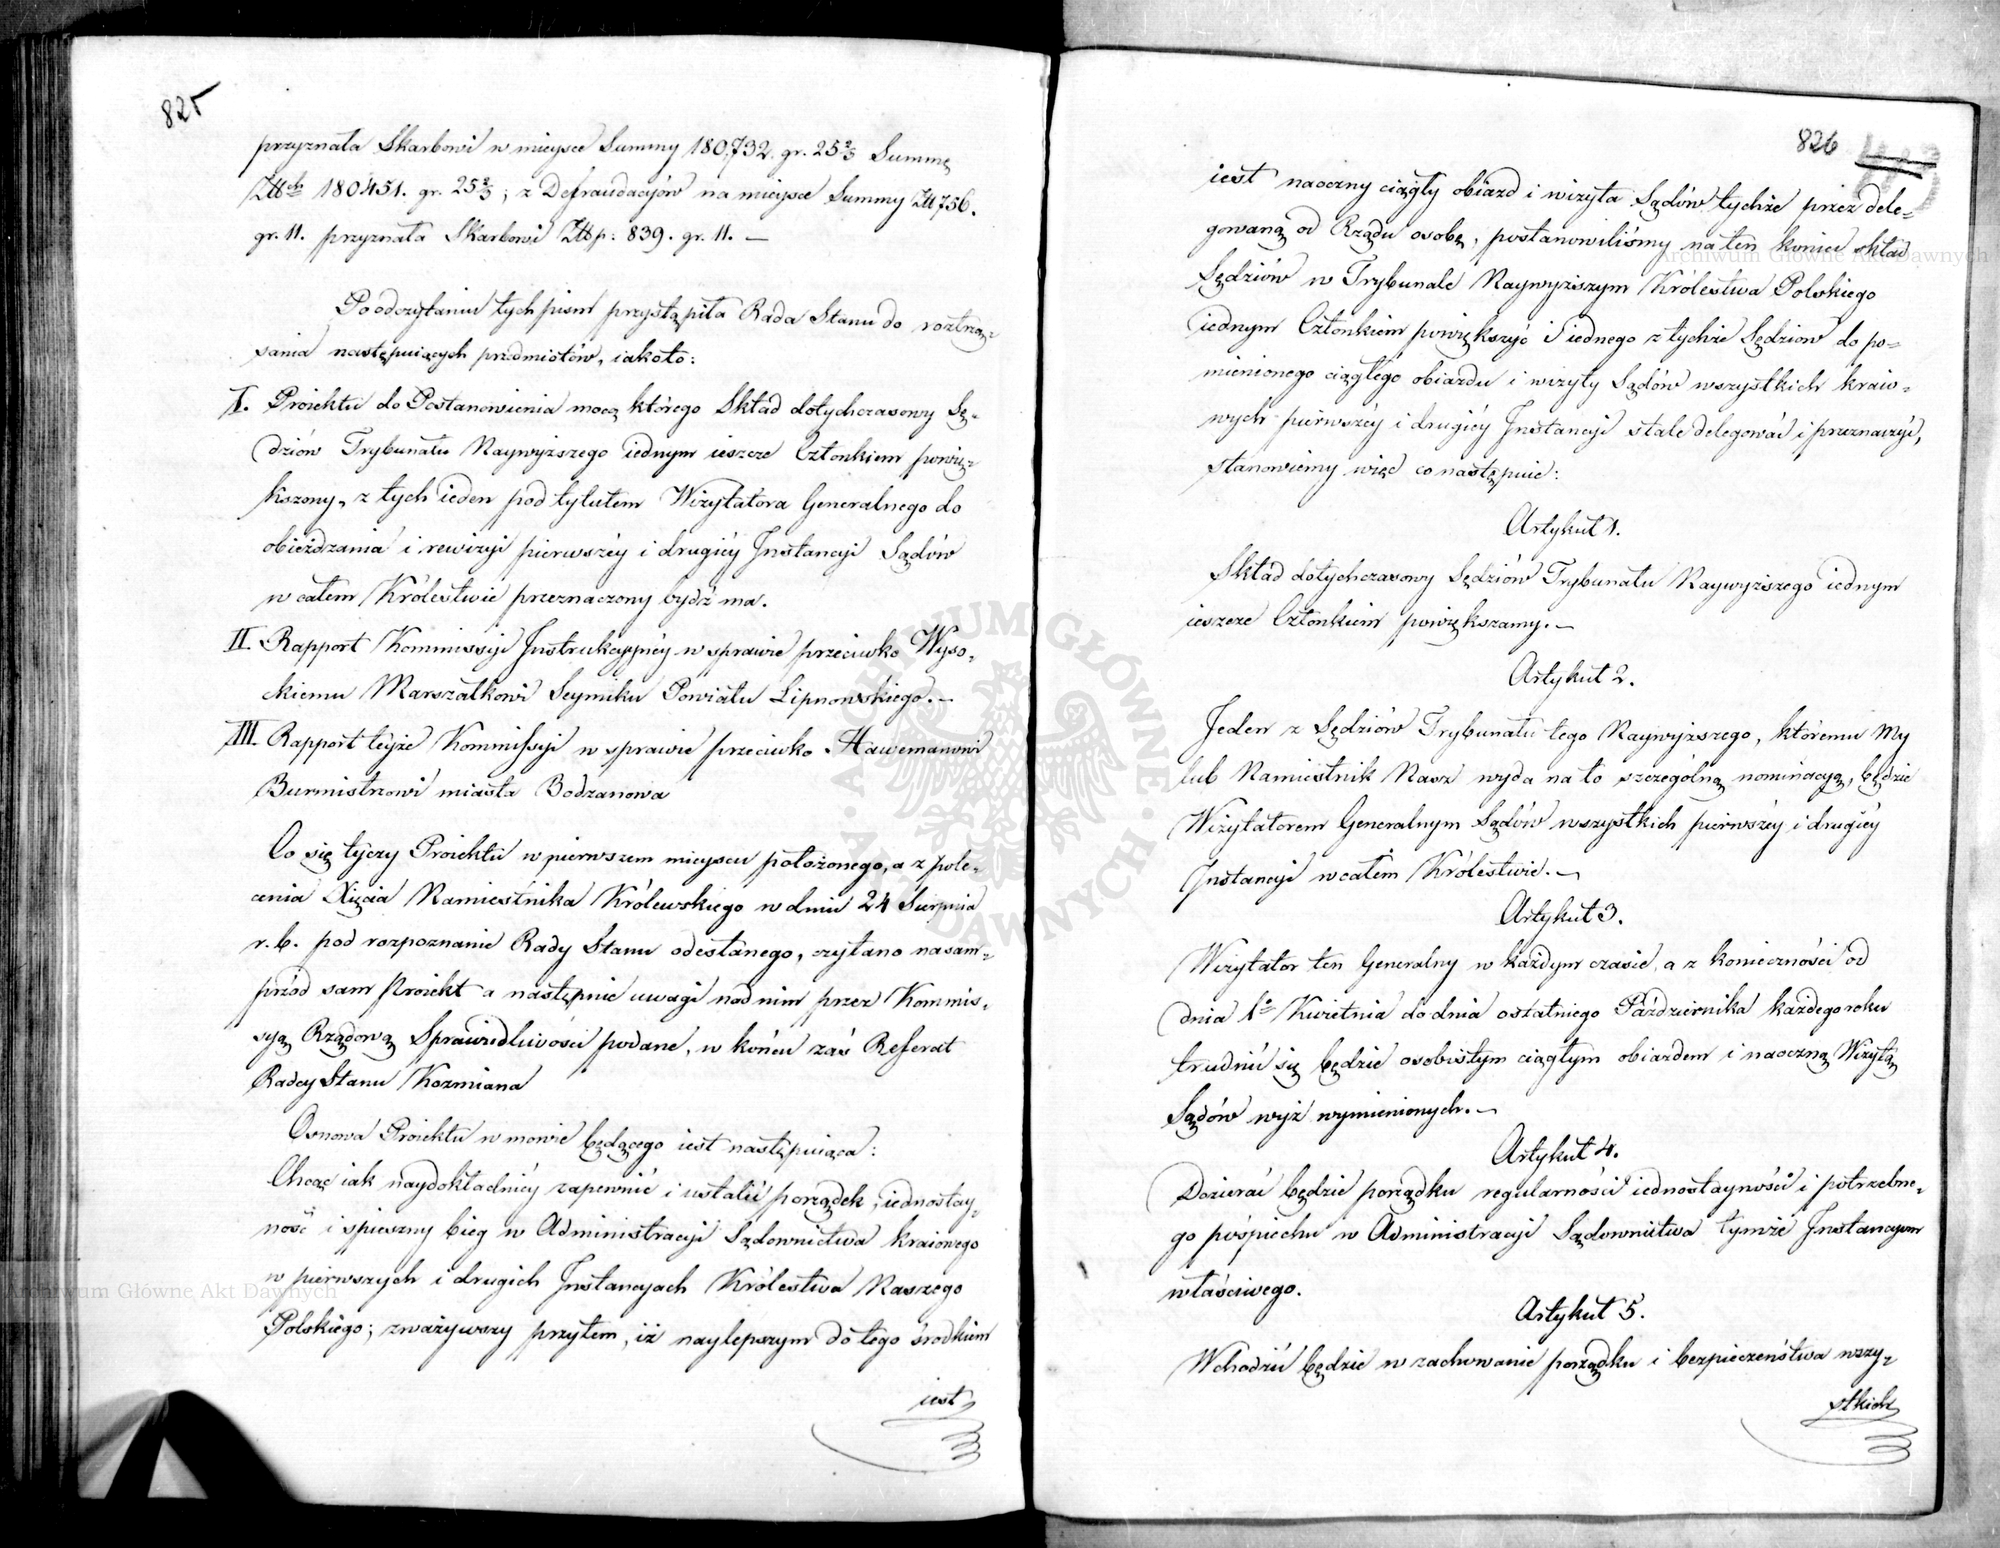 825
przyznała Skarbowi w mieysce Summy 180,732. gr. 25⅔ Summę
Złłch 180451. gr. 25⅔; z Defraudacyiów na mieysce Summy Zł 756.
gr. 11. przyznała Skarbowi Złłp: 839. gr. 11. —
Po odczytaniu tych pism przystąpiła Rada Stanu do roztrzą-
sania następuiących przedmiotów, iakoto:
I. Proiektu do Postanowienia mocą którego Skład dotychczasowy Sę-
dziów Trybunału Naywyższego iednym ieszcze Członkiem powię-
kszony, z tych ieden pod tytułem Wizytatora Generalnego do
obieżdzania i rewizyi pierwszéy i drugiéy Instancyi Sądów
w całem Królestwie przeznaczony bydź ma.
II. Rapport Kommissyi Instrukcyynéy w sprawie przeciwko Wyso-
ckiemu Marszałkowi Seymiku Powiatu Lipnowskiego. —
III. Rapport teyże Kommissyi w sprawie przeciwko Hawemanowi
Burmistrzowi miasta Bodzanowa
Co się tyczy Proiektu w pierwszem mieyscu położonego, a z pole-
cenia Xięcia Namiestnika Królewskiego w dniu 24 Sierpnia
r. b. pod rozpoznanie Rady Stanu odesłanego, czytano nasam-
przód sam Proiekt a następnie uwagi nad nim przez Kommis-
syą Rządową Sprawiedliwości podane, w końcu zaś Referat
Radcy Stanu Kozmiana
Osnowa Proiektu w mowie będącego iest następuiąca:
Chcąc iak naydokładniéy zapewnić i ustalić porządek, iednostay-
ność i spieszny bieg w Administracyi Sądownictwa kraiowego
w pierwszych i drugich Instancyach Królestwa Naszego
Polskiego; zważywszy przytem, iż naylepszym do tego środkiem
iest
826
iest naoczny ciągły obiazd i wizyta Sądów tychże przez dele-
gowaną od Rządu osobę, postanowiliśmy na ten koniec skład
Sędziów w Trybunale Naywyższym Królestwa Polskiego
iednym Członkiem powiększyć i iednego z tychże Sędziów do po-
mienionego ciągłego obiazdu i wizyty Sądów wszystkich kraio-
wych pierwszéy i drugiéy Instancyi stale delegować i przeznaczyć,
stanowiemy więc co następuie:
Artykuł 1.
Skład dotychczasowy Sędziów Trybunału Naywyższego iednym
ieszcze Członkiem powiększamy. —
Artykuł 2.
Jeden z Sędziów Trybunału tego Naywyższego, któremu My
lub Namiestnik Nasz wyda na to szczególną nominacyą, będzie
Wizytatorem Generalnym Sądów wszystkich pierwszéy i drugiéy
Instancyi w całem Królestwie. —
Artykuł 3.
Wizytator ten Generalny w każdym czasie, a z konieczności od
dnia 1o Kwietnia do dnia ostatniego Października każdego roku
trudnić się będzie osobistym ciągłym obiazdem i naoczną Wizytą
Sądów wyż wymienionych. —
Artykuł 4.
Dozierać będzie porządku regularności iednostayności i potrzebne-
go pośpiechu w Administracyi Sądownictwa tymże Instancyom
właściwego.
Artykuł 5.
Wchodzić będzie w zachowanie porządku i bezpieczeństwa wszy-
stkich
Archiwum Główne Akt Dawnych
Archiwum Główne Akt Dawnych
ARCHIWUM GŁÓWNE AKT DAWNYCH